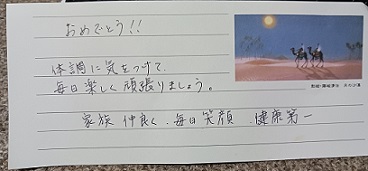 おめでとう!!
体調に気をつけて、
毎日楽しく頑張りましょう。
家族仲良く、毎日笑顔 健康第一